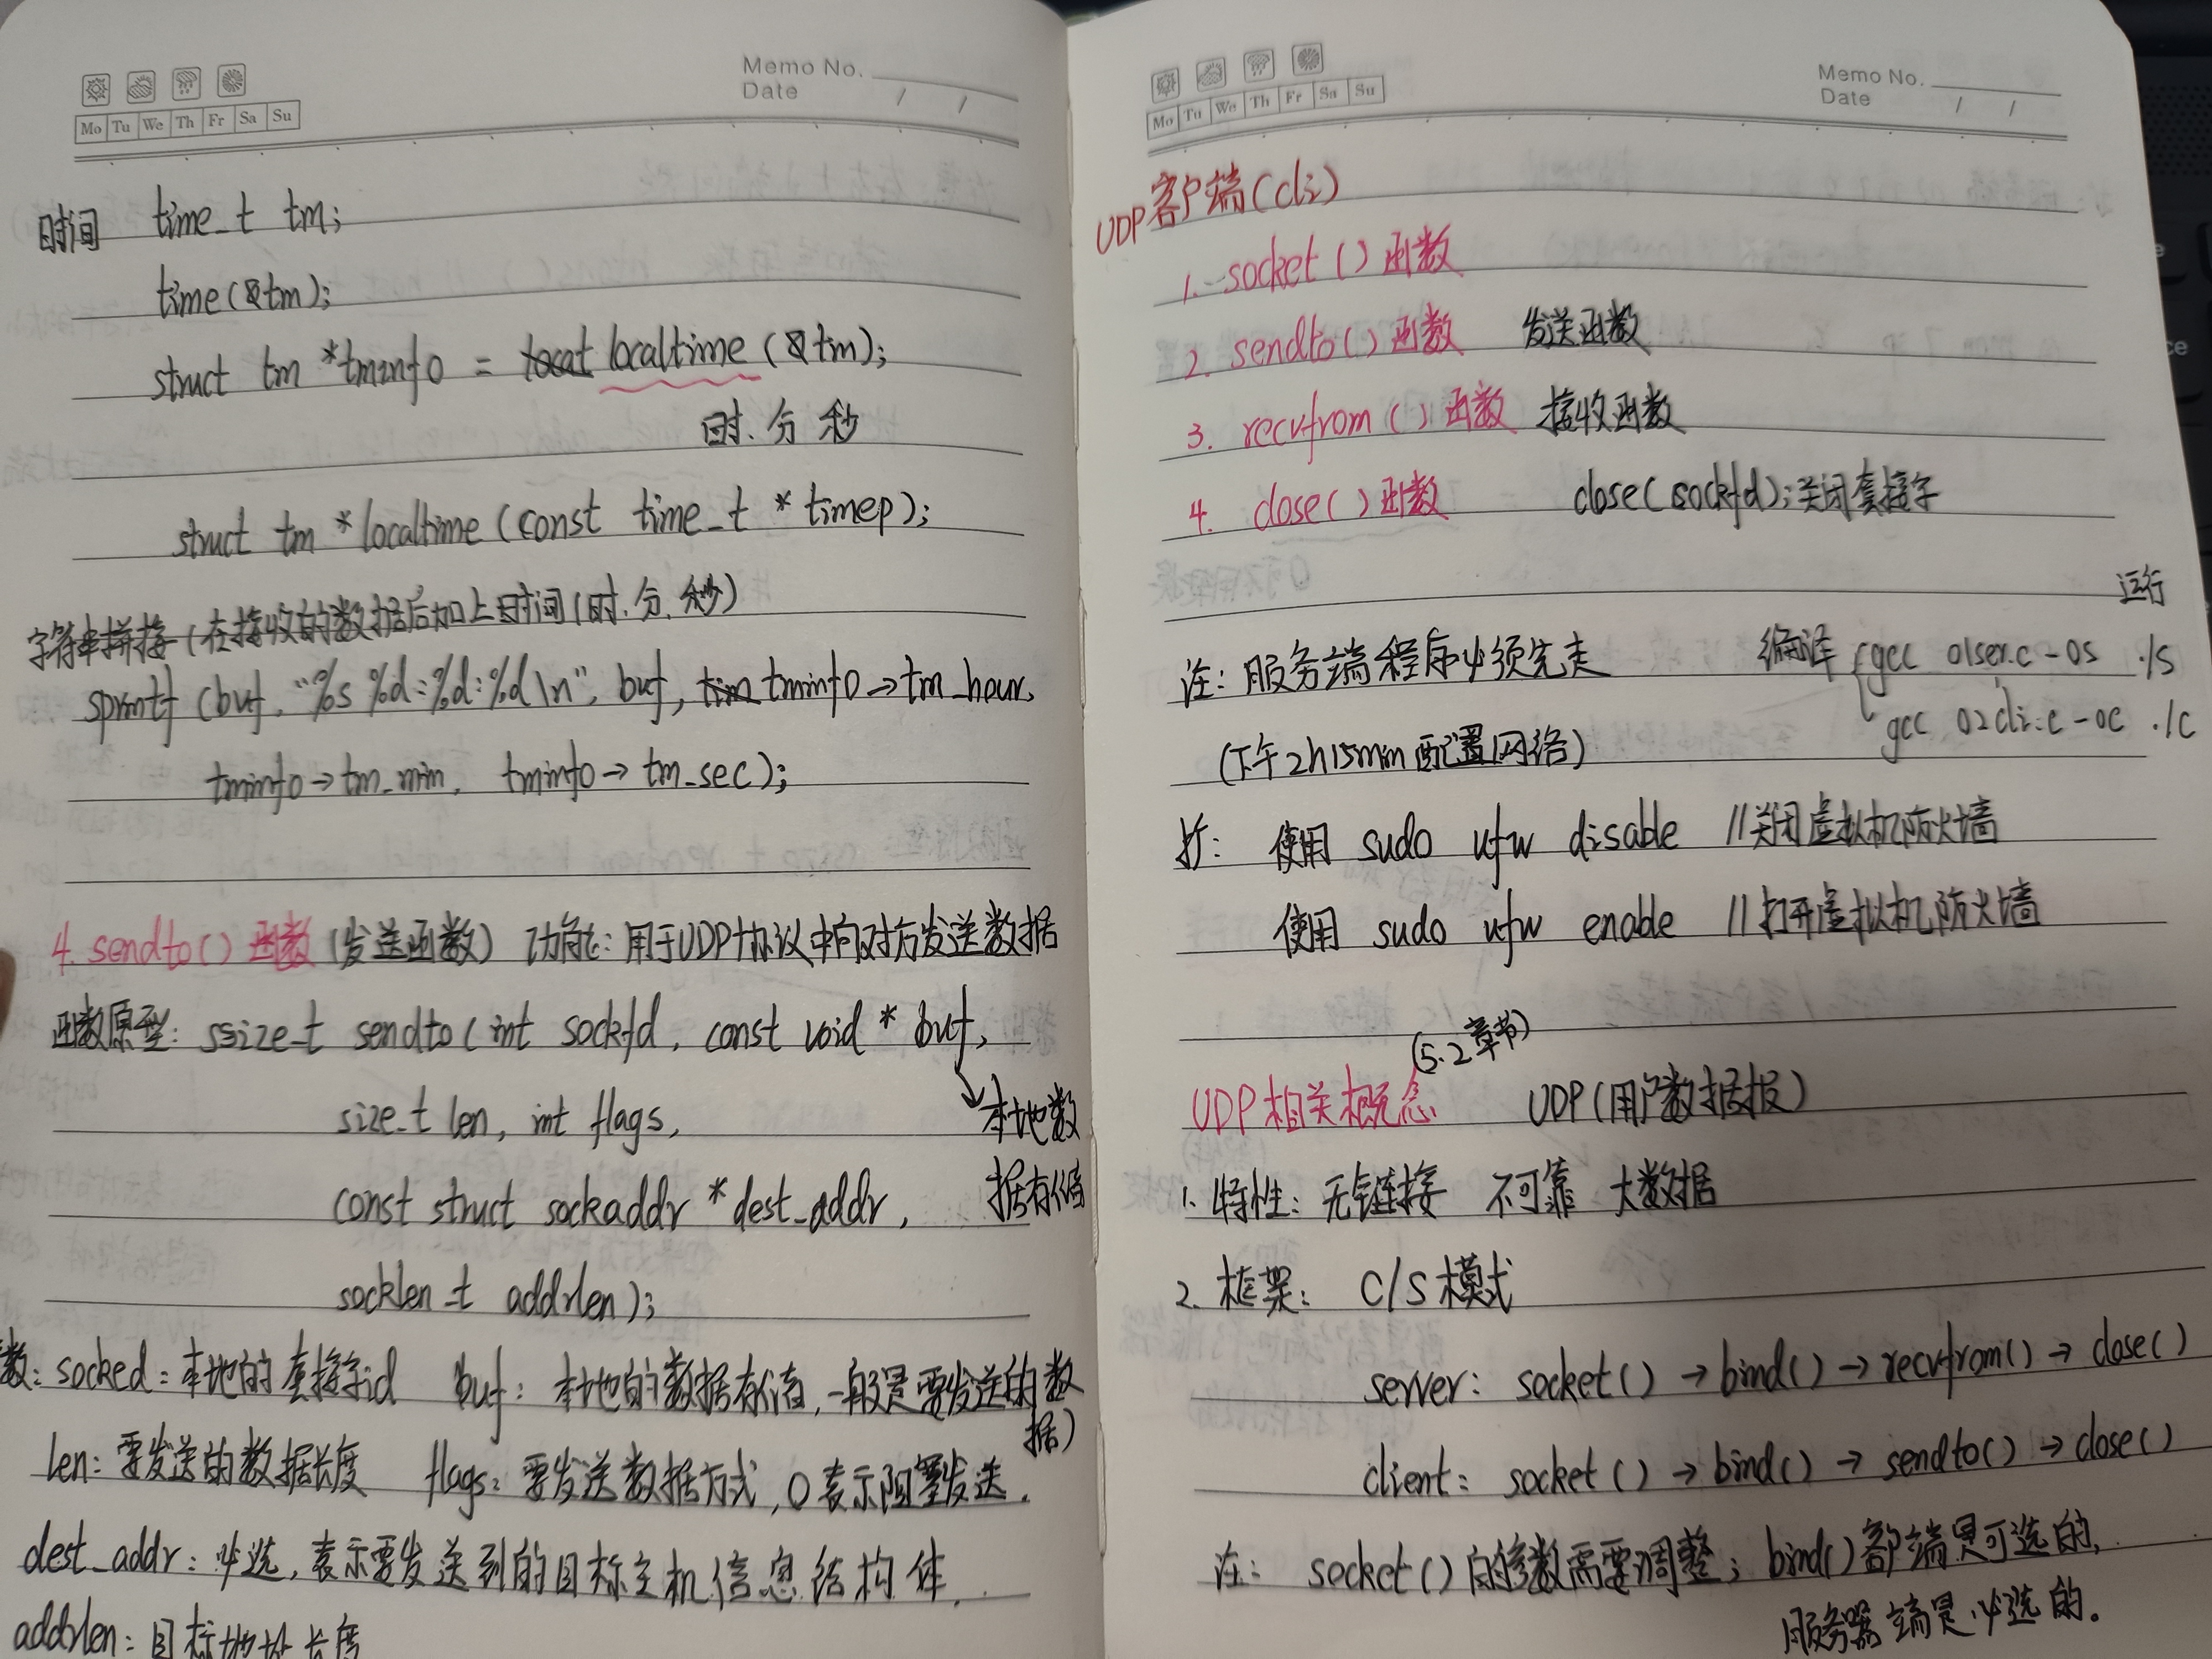 Memo No.
Date / /
Mo Tu We Th Fr Sa Su
时间 time_t tm;
time(&tm);
struct tm *tminfo = localtime(&tm);
时、分 秒
struct tm *localtime(const time_t *timep);
字符串拼接(在接收的数据后加上时间(时、分、秒)
sprintf(buf, "%s %d:%d:%d\n", buf, tminfo→tm_hour,
tminfo→tm_min, tminfo→tm_sec);
4. sendto()函数(发送函数) 功能:用于UDP协议中向对方发送数据
函数原型: ssize_t sendto(int sockfd, const void * buf,
size_t len, int flags,
本地数
const struct sockaddr *dest_addr,
据存储
socklen_t addrlen);
数: socked:本地的套接字id buf: 本地的数据存储,一般是要发送的数
据)
len:要发送的数据长度 flags:要发送数据方式,0表示阻塞发送.
dest_addr:必选,表示要发送到的目标主机信息结构体.
addrlen:目标地址长度
Memo No.
Date / /
Mo Tu We Th Fr Sa Su
UDP客户端(cli)
1. socket()函数
2. sendto()函数 发送函数
3. recvfrom()函数 接收函数
4. close()函数 close(sockfd);关闭套接字
运行
注:服务端程序必须先走 编译 gcc 01ser.c -os ./s
gcc 02cli.c -oc ./c
(下午2h15min配置网络)
扩: 使用 sudo ufw disable //关闭虚拟机防火墙
使用 sudo ufw enable //打开虚拟机防火墙
(5.2章节)
UDP相关概念 UDP(用户数据报)
1. 特性: 无链接 不可靠 大数据
2. 框架: C/S模式
server: socket()→bind()→recvfrom()→close()
client: socket()→bind()→sendto()→close()
注: socket()的参数需要调整; bind()客户端是可选的,
服务器端是必选的。